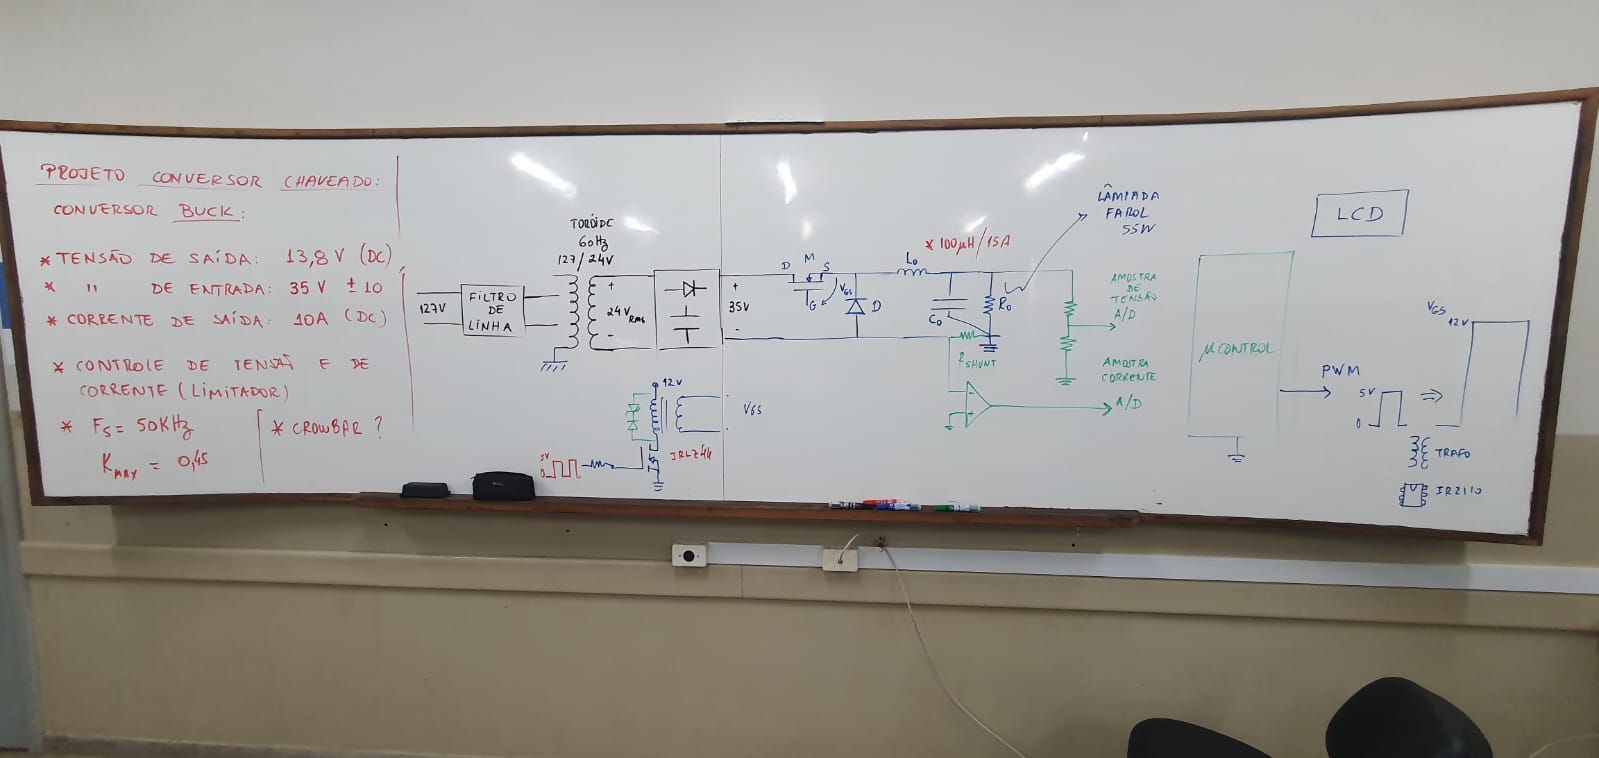 PROJETO CONVERSOR CHAVEADO:
CONVERSOR BUCK:
* TENSÃO DE SAÍDA: 13,8 V (DC)
* " DE ENTRADA: 35 V ± 10
* CORRENTE DE SAÍDA: 10A (DC)
* CONTROLE DE TENSÃO E DE
CORRENTE (LIMITADOR)
* FS = 50KHz
KMAX = 0,45
* CROWBAR ?
127V
FILTRO
DE
LINHA
TORÓIDE
60Hz
127/24V
+
24VRMS
-
+
35V
-
D M S
G
VGS
D
L0
* 100µH/15A
C0
R0
LÂMPADA
FAROL
55W
RSHUNT
-
+
AMOSTRA
DE
TENSÃO
A/D
AMOSTRA
CORRENTE
A/D
12V
VGS
5V
0
IRLZ44
µCONTROL.
LCD
PWM
5V
0
⇒
VGS
12V
TRAFO
IR2110